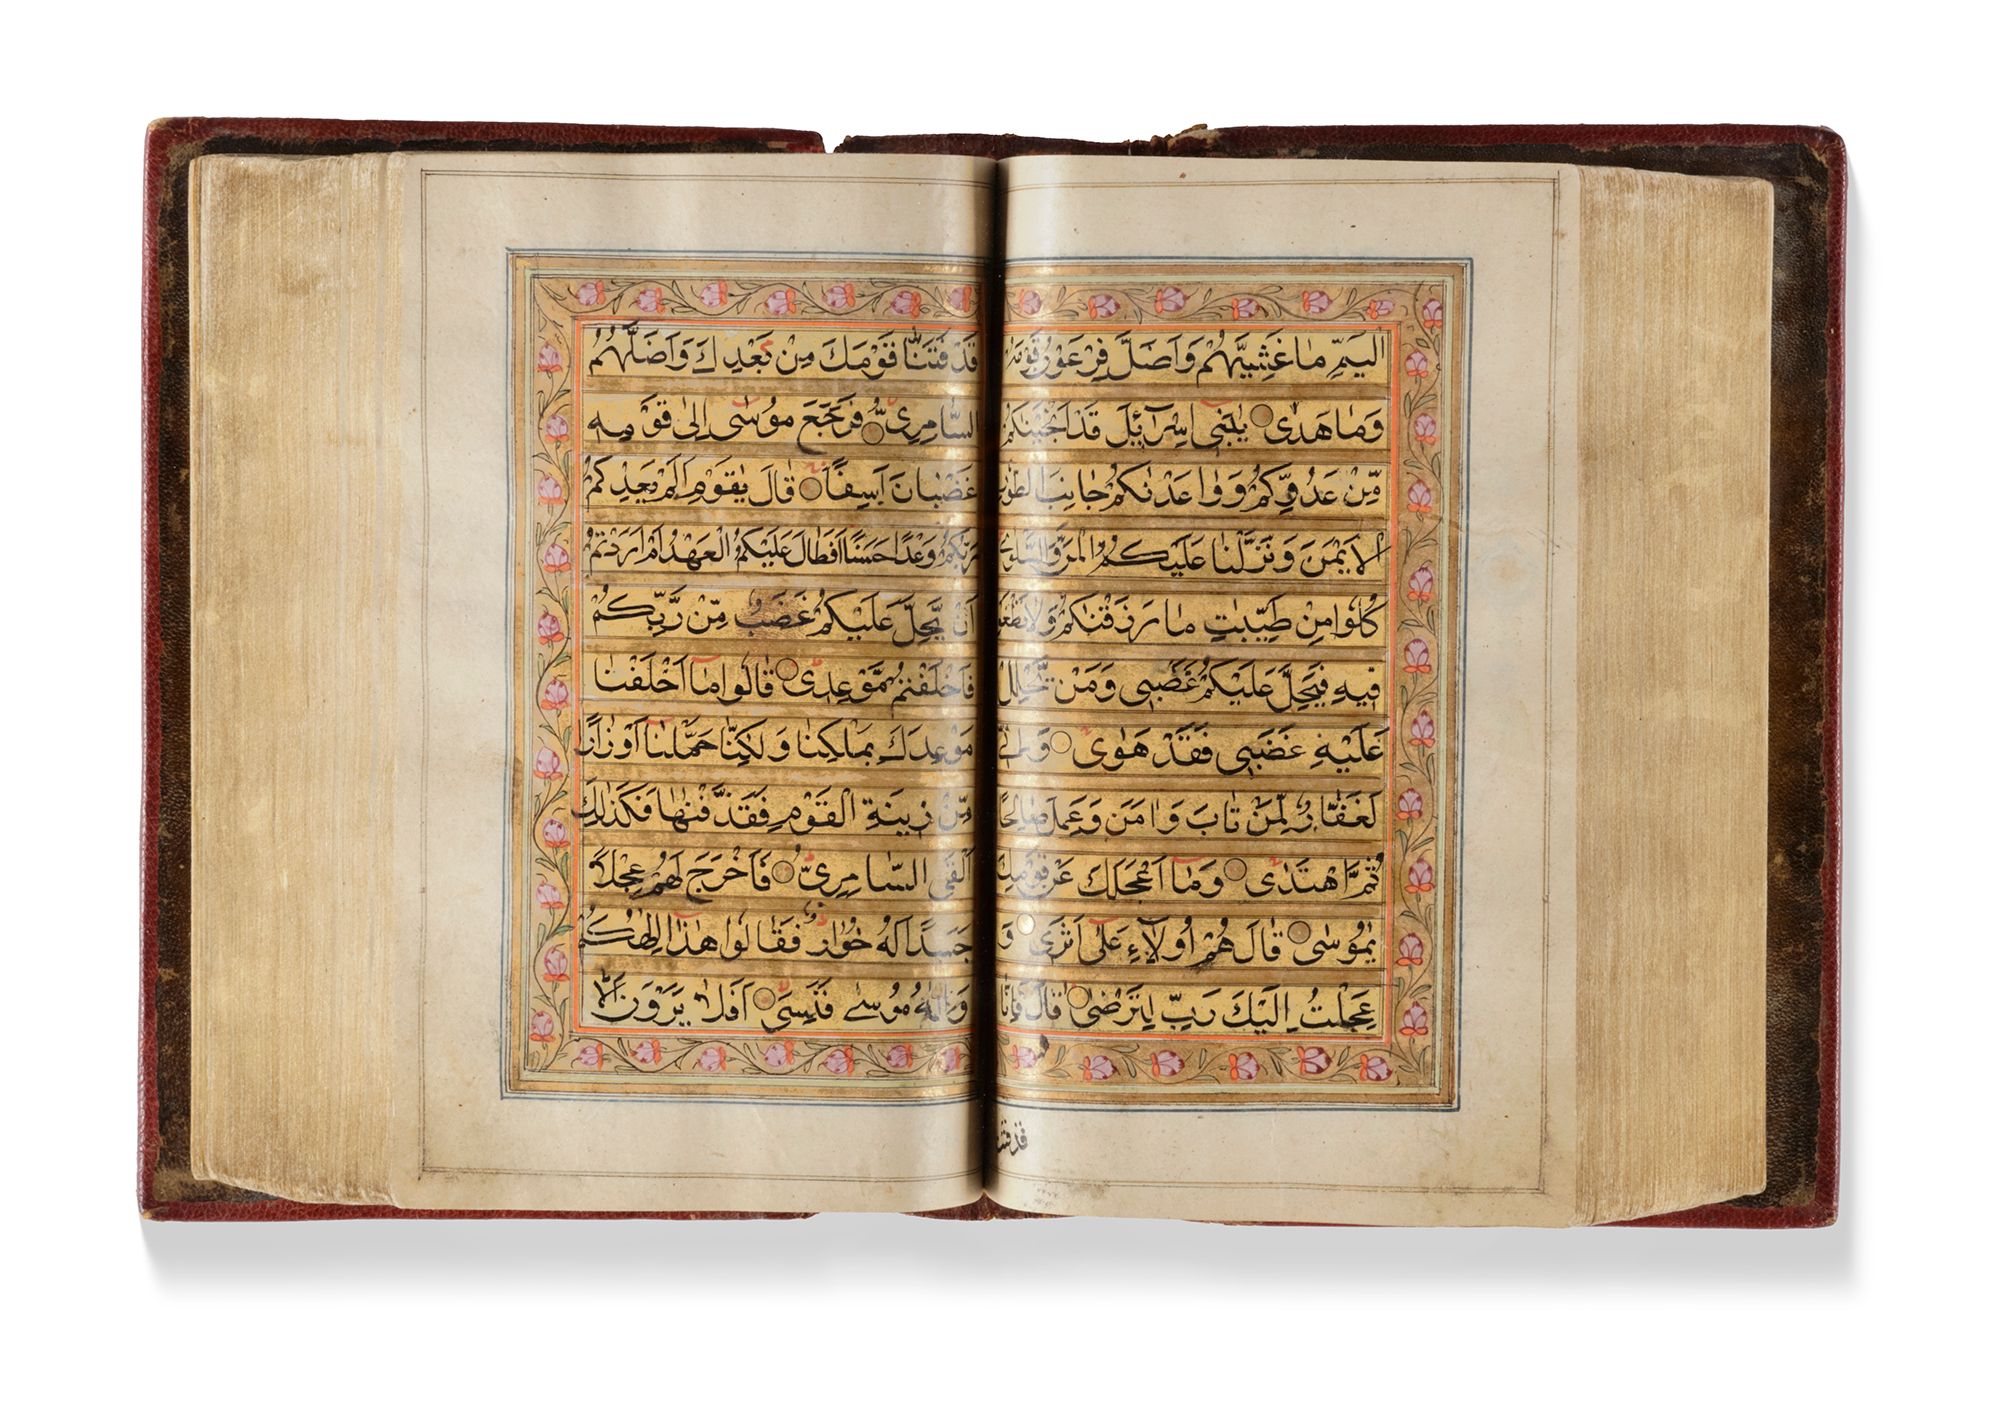 اليم ما غشيهم واضل فرعون قومه
وما هدى يبني اسرآئيل قد انجينكم
من عدوكم ووعدنكم جانب الطور
الايمن ونزلنا عليكم المن والسلوى
كلوا من طيبت ما رزقنكم ولا تطغوا
فيه فيحل عليكم غضبي ومن يحلل
عليه غضبي فقد هوى واني
لغفار لمن تاب وامن وعمل صالحا
ثم اهتدى وما اعجلك عن قومك
يموسى قال هم اولآء على اثري و
عجلت اليك رب لترضى قال فانا
قد فتنا
قد فتنا قومك من بعدك واضلهم
السامري فرجع موسى الى قومه
غضبان اسفا قال يقوم الم يعدكم
ربكم وعدا حسنا افطال عليكم العهد ام اردتم
ان يحل عليكم غضب من ربكم
فاخلفتم موعدي قالوا ما اخلفنا
موعدك بملكنا ولكنا حملنا اوزارا
من زينة القوم فقذفنها فكذلك
القى السامري فاخرج لهم عجلا
جسدا له خوار فقالوا هذا الهكم
واله موسى فنسي افلا يرون الا